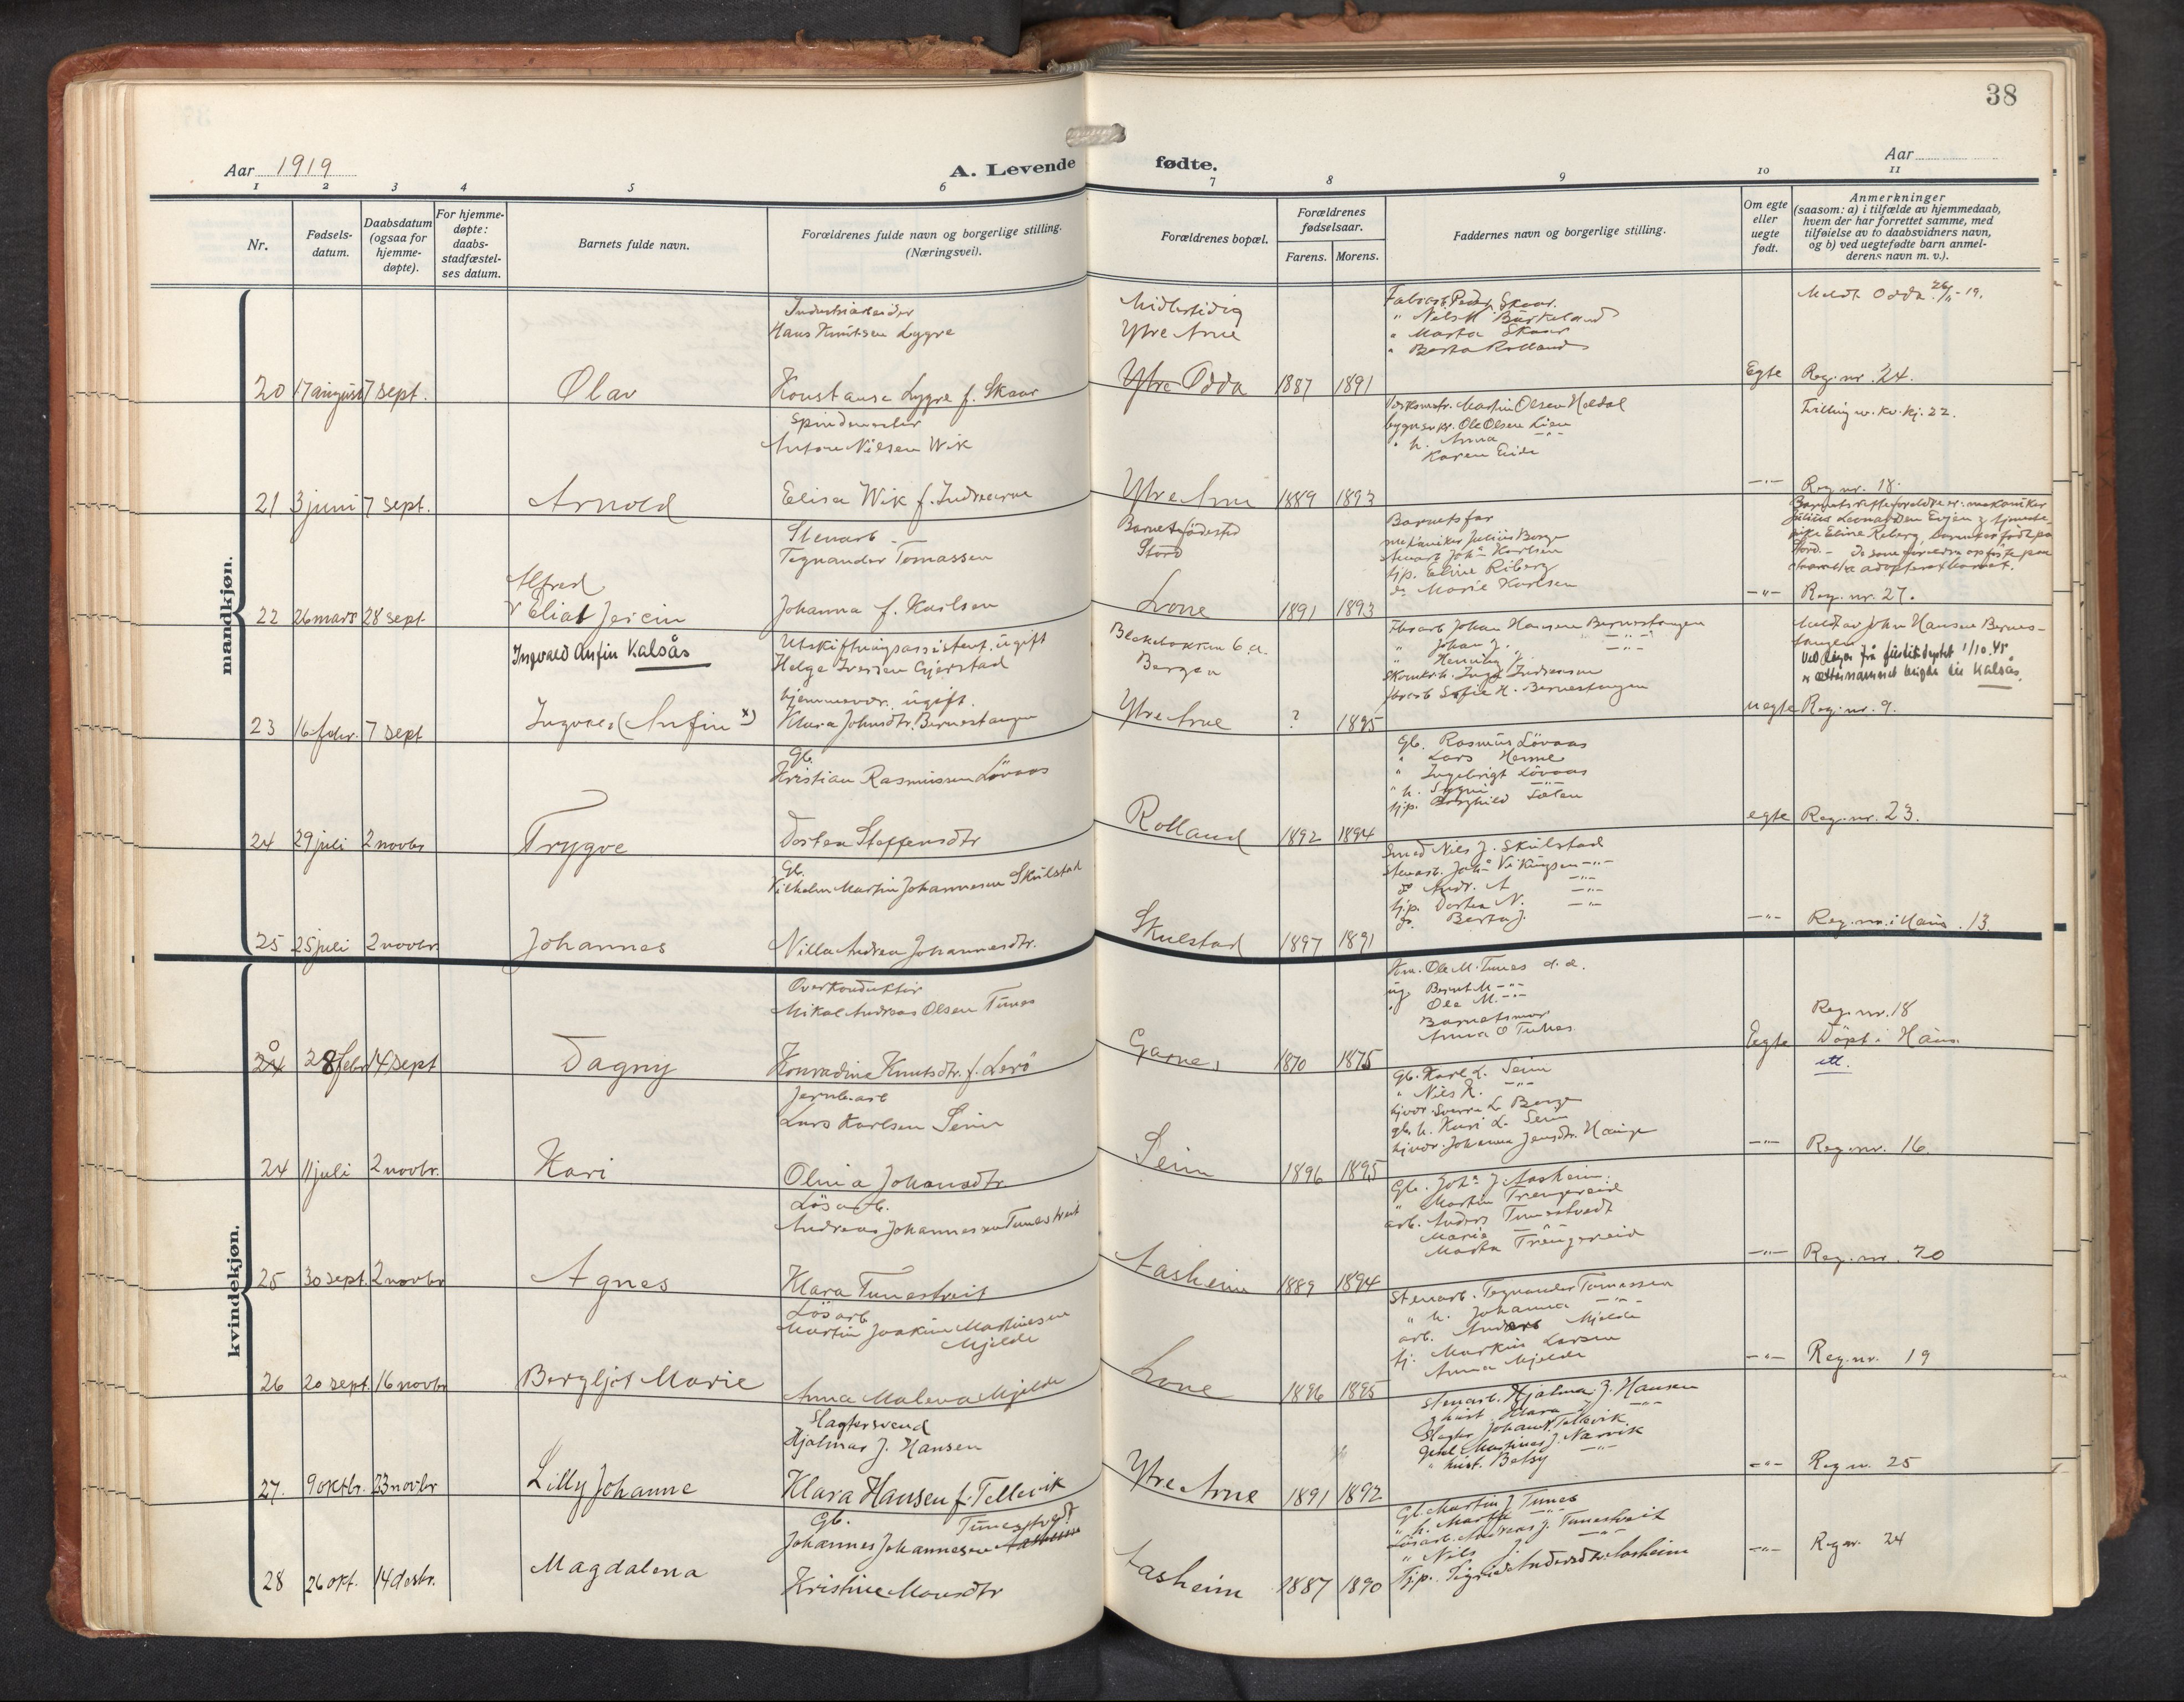 38
Aar 1919
A. Levende fødte.
Aar
1 2 3 4 5 6 7 8 9 10 11
Nr.
Fødsels-
datum.
Daabsdatum
(ogsaa for
hjemme-
døpte).
For hjemme-
døpte:
daabs-
stadfæstel-
ses datum.
Barnets fulde navn.
Forældrenes fulde navn og borgerlige stilling.
(Næringsvei).
Forældrenes bopæl.
Forældrenes
fødselsaar.
Farens. Morens.
Faddernes navn og borgerlige stilling.
Om egte
eller
uegte
født.
Anmerkninger
(saasom: a) i tilfælde av hjemmedaab,
hvem der har forrettet samme, med
tilføielse av to daabsvidners navn,
og b) ved uegtefødte barn anmel-
derens navn m. v.).
mandkjøn.
20 17 august 7 sept.
Olav
Industriarbeider
Hans Knutsen Lygre
Konstanse Lygre f. Skaar
Midlertidig
Ytre Arne
Ytre Odda
1887 1891
Fabrarb. Peder Skaar.
" Nils M Birkeland
" Marta Skaar
" Berta Rolland
Egte
Meldt Odda 26/11-19.
Reg. nr. 24.
21 3 juni 7 sept.
Arnold
Spindemester
Anton Nilsen Wik
Elisa Wik f. Indrearne
Ytre Arne
1889 1893
Verksmstr. Martin Olsen Hældal
bygn.snr. Ole Olsen Lien
" h. Anna -"-
Karen Eide
-"-
Tvilling m. kv. kj. 22.
Reg. nr. 18.
22 26 mars 28 sept.
Alfred
Elias Jesein
Stenarb.
Tegnander Tomassen
Johanna f. Karlsen
Barnets fødested
Stord
Lone
1891 1893
Barnets far
mekaniker Julius Borge
stenarb. Joh's Karlsen
tjp. Eline Riberg
do Marie Karlsen
-"-
Barnets rette forældre er: mekaniker
Julius Leonardsen Evjen & tjeneste-
pike Eline Reberg, barnet er født paa
Stord. - De som forældre opførte paa
adoptert barnet.
Reg. nr. 27.
23 16 febr. 7 sept
Ingvald Anfin Kalsås
Ingvald (Anfin x)
Utskiftningsassistent, ugift
Helge Iversen Gjerstad
hjemmevær. ugift.
Klara Johnsdtr. Bernestangen
Blekebakken 6 a.
Bergen
Ytre Arne
? 1895
Fbrarb Johan Hansen Bernestangen
" Johan J. -"-
" Henning J. -"-
Skomkrh. Inga Indresen
fbrarb Sofie H. Bernestangen
uegte
Meldt av John Hansen Bernes-
tangen
Ved ... frå justisdeptet 1/10.45
er etternamnet brigda til Kalsås.
Reg. nr. 9.
24 29 juli 2 novbr
Trygve
Gb.
Kristian Rasmussen Lövaas
Dortea Steffensdtr
Rolland
1892 1894
Gb. Rasmus Lövaas
" Lars Henne
" Ingebrigt Lövaas
" h. Sygni -"-
tjp. Borghild Sælen
egte
Reg. nr. 23.
25 25 juli 2 novbr.
Johannes
Gb.
Vilhelm Martin Johannesen Skulstad
Nilla Andrea Johannesdtr.
Skulstad
1897 1891
Smed Nils J. Skulstad
stenarb. Joh's Vikingsen -"-
do Andr. A -"-
tjp. Dortea N. -"-
do Berta J.
-"-
Reg. nr. i Haus. 13.
kvindekjøn.
24 28 febr 14 sept
Dagny
Overkonduktör
Mikal Andreas Olsen Tunes
Konradine Knutsdtr. f. Lerö
Garnes
1870 1875
Km. Ole M. Tunes d. æ.
ug. Bernt M -"-
" Ole M. -"-
Barnets mor
Anna O Tunes
Egte
Reg. nr. 18
Döpt i Haus.
24 11 juli 2 novbr.
Kari
Jernb.arb
Lars Karlsen Seim
Olina Johansdtr
Seim
1896 1895
Gb. Karl L. Seim
" Nils K. -"-
hjvær. Sverre L Borge
gb. h. Kari L. Seim
hjvær. Johanna Jensdtr. Hauge
-"-
Reg. nr. 16.
25 30 sept. 2 novbr
Agnes
Lösarb.
Andreas Johannessen Tunestveit
Klara Tunestveit
Aasheim
1889 1894
Gb. Joh's J Aasheim.
" Martin Trengereid
arb. Anders Tunestvedt
Marie -"-
Marta Trengereid
-"-
Reg. nr. 20
26 20 sept. 16 novbr
Bergljot Marie
Lösarb
Martin Joakim Martinesen
Mjelde
Anna Malena Mjelde
Lone
1896 1895
Stenarb. Tegnander Tomassen
" h. Johanna -"-
arb. Anders Mjelde
tj. Markus Larsen
Anna Mjelde
-"-
Reg. nr. 19
27. 9 oktbr. 23 novbr
Lilly Johanne
Slagtersvend
Hjalmar J. Hansen
Klara Hansen f. Tellevik
Ytre Arne
1891 1892
Stenarb. Hjalmar J. Hansen
" hust. Klara J. -"-
Slagter Johan N. Tellevik
Martines J. Narvik
" hust. Betsy -"-
-"-
Reg nr. 25
28 26 okt. 14 desbr.
Magdalena
Gb. Tunestvedt
Johannes Johannesen Aasheim
Kristine Monsdtr
Aasheim
1887 1890
Gb. Martin J Tunes
" h. Marta -"-
Lösarb. Andreas J. Tunestveit
" Nils J -"-
Tjp. Sigrid Andersdtr. Aasheim
-"-
Reg nr. 24